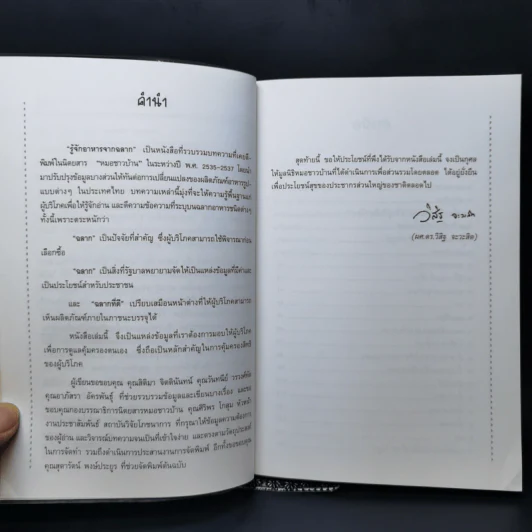 คำนำ
"รู้จักอาหารจากฉลาก" เป็นหนังสือที่รวบรวมบทความที่เคยตี
พิมพ์ในนิตยสาร "หมอชาวบ้าน" ในระหว่างปี พ.ศ. 2535-2537 โดย
มาปรับปรุงข้อมูลบางส่วนให้ทันต่อการเปลี่ยนแปลงของผลิตภัณฑ์อาหารรูป
แบบต่างๆ ในประเทศไทย บทความเหล่านี้มุ่งที่จะให้ความรู้พื้นฐาน
ผู้บริโภคเพื่อให้รู้จักอ่าน และตีความข้อความที่ระบุบนฉลากอาหารชนิดต่างๆ
ทั้งนี้เพราะตระหนักว่า
"ฉลาก" เป็นปัจจัยที่สำคัญ ซึ่งผู้บริโภคสามารถใช้พิจารณาก่อน
เลือกซื้อ
"ฉลาก" เป็นสิ่งที่รัฐบาลพยายามจัดให้เป็นแหล่งข้อมูลที่มีค่าและ
เป็นประโยชน์สำหรับประชาชน
และ "ฉลากที่ดี" เปรียบเสมือนหน้าต่างที่ให้ผู้บริโภคสามารถ
เห็นผลิตภัณฑ์ภายในภาชนะบรรจุได้
หนังสือเล่มนี้ จึงเป็นแหล่งข้อมูลที่เราต้องการมอบให้ผู้บริโภค
เพื่อการดูแลคุ้มครองตนเอง ซึ่งถือเป็นหลักสำคัญในการคุ้มครองสิทธิ
ของผู้บริโภค
ผู้เขียนขอขอบคุณ คุณสิติมา จิตตินันทน์ คุณวันทนีย์
คุณอาภัสรา อัครพันธุ์ ที่ช่วยรวบรวมข้อมูลและเขียนบางเรื่อง และขอ
ขอบคุณกองบรรณาธิการนิตยสารหมอชาวบ้าน คุณศิริพร โกสุม หัวหน้า
งานประชาสัมพันธ์ สถาบันวิจัยโภชนาการ ที่กรุณาให้ข้อมูลความต้องการ
ของผู้อ่าน และวิจารณ์บทความจนเป็นที่เข้าใจง่าย และตรงตามวัตถุประสงค์
ในการจัดทำ รวมถึงดำเนินการประสานงานการจัดพิมพ์ อีกทั้งขอขอบคุณ
คุณสุดารัตน์ พงษ์ประภูร ที่ช่วยจัดพิมพ์ต้นฉบับ
สุดท้ายนี้ ขอให้ประโยชน์ที่พึงได้รับจากหนังสือเล่มนี้ จงเป็นกุศล
ให้มูลนิธิหมอชาวบ้านที่ได้ดำเนินการเพื่อส่วนรวมโดยตลอด ได้อยู่ยั่งยืน
เพื่อประโยชน์สุขของประชากรส่วนใหญ่ของชาติตลอดไป
วิสิฐ จะวะสิต
(ผศ.ดร.วิสิฐ จะวะสิต)